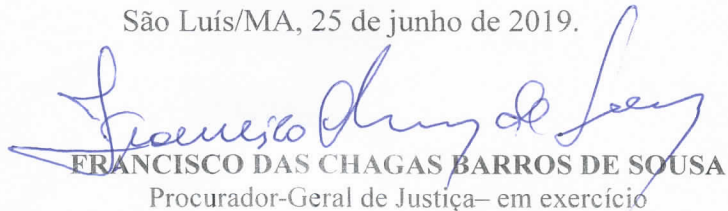 São Luís/MA, 25 de junho de 2019.
FRANCISCO DAS CHAGAS BARROS DE SOUSA
Procurador-Geral de Justiça– em exercício